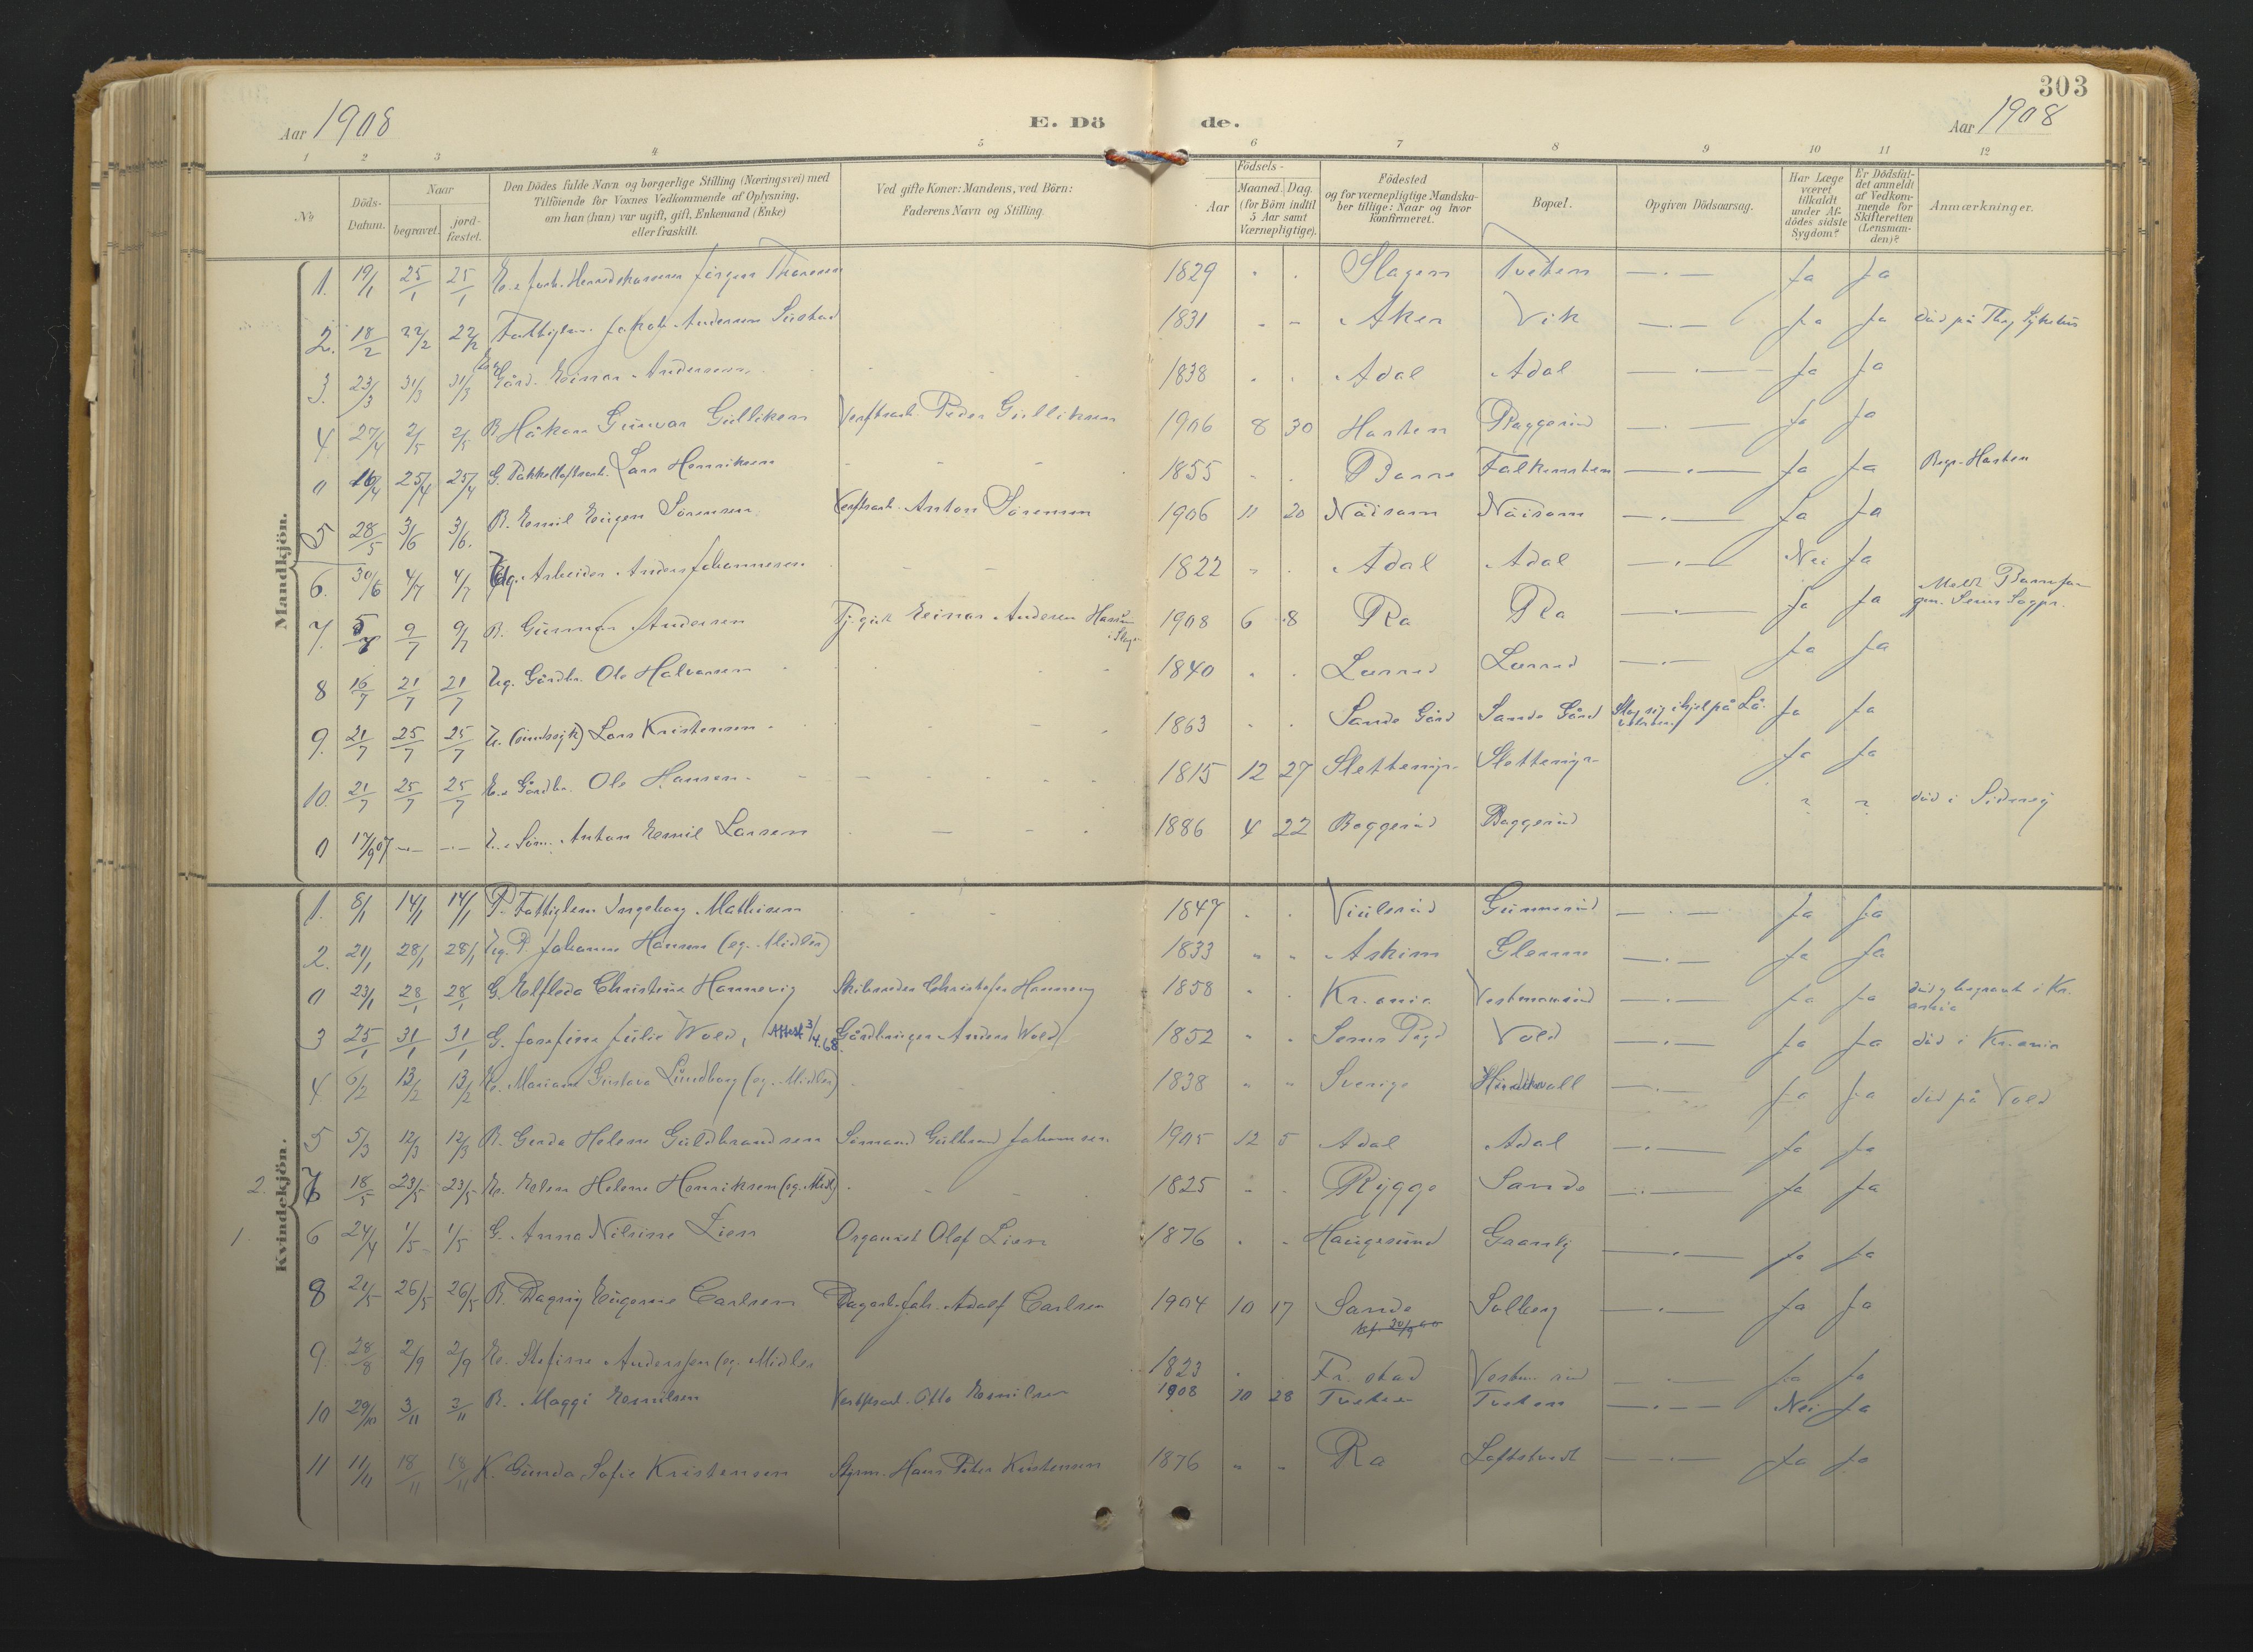 303
Aar 1908
E. Dö de.
Aar 1908
1 2 3 4 5 6 7 8 9 10 11 12
No
Döds-Datum.
Naar
begravet.
jord-fæstet.
Den Dödes fulde Navn og borgerlige Stilling (Næringsvei) med
Tilföiende for Voxnes Vedkommende af Oplysning,
om han (hun) var ugift, gift, Enkemand (Enke)
eller fraskilt.
Ved gifte Koner: Mandens, ved Börn:
Faderens Navn og Stilling.
Födsels-
Aar
Maaned. Dag.
(for Börn indtil
5 Aar samt
Værnepligtige).
Födested
og for værnepligtige Mandska-
ber tillige: Naar og hvor
konfirmeret.
Bopæl.
Opgiven Dödsaarsag.
Har Læge
været
tilkaldt
under Af-
dödes sidste
Sygdom?
Er Dödsfal-
det anmeldt
af Vedkom-
mende for
Skifteretten
(Lensman-
den)?
Anmærkninger.
Mandkjön.
1. 19/1 25/1 25/1 Jörgen Thoresen 1829 Slagen Tveten — . — Ja Ja
2. 18/2 22/2 22/2 Fattiglem Jakob Andersen 1831 Aker Vik — . — Ja Ja död på Tbg. Sykehus
3. 23/3 31/3 31/3 Gård. Einar Andersen 1838 Adal Adal — . — Ja Ja
4 27/4 2/5 2/5 B. Håkon Gunvar Gulliksen Verftsarb. Peder Gulliksen 1906 8 30 Horten Baggerud — . — Ja Ja
0 16/4 25/4 25/4 G. Lars Henriksen 1855 Borre Falkensten — . — Ja Ja Begr. Horten
5 28/5 3/6 3/6. B. Emil Eugen Sörensen Verftsarb. Anton Sörensen 1906 11 20 — . — Ja Ja
6. 30/6 4/7 4/7 Arbeider Anders Johannesen 1822 Adal Adal — . — Nei Ja
7. 5/7 9/7 9/7 B. Gunnar Andersen Einar Andersen 1908 6 8 Ra Ra — . — Ja Ja
8 16/7 21/7 21/7 Ug. Gårdbr. Ole Halvorsen 1840 — . — Ja Ja
9. 21/7 25/7 25/7 U. (sindssyk) Lars Kristensen 1863 Sande Gård Sande Gård Slog sig ihjel på Ja Ja
10. 21/7 25/7 25/7 E. Gårdbr. Ole Hansen 1815 12 27 Slettemyr Slettemyr Ja Ja
0 17/9 07 — — U. Söm. Anton Emil Larsen 1886 4 22 Baggerud Baggerud ? ? död i Sidney
Kvindekjön.
1. 8/1 14/1 14/1 P. Fattiglem Ingeborg Mathisen 1847 Gunnerud — . — Ja Ja
2. 21/1 28/1 28/1 Ug. P. Johanne Hansen (eg. Midler) 1833 Askim Glenne — . — Ja Ja
0 23/1 28/1 28/1 G. Elfleda Christine Hannevig Skibsreder Christofer Hannevig 1858 Kr.ania Vestmanrud — . — Ja Ja död og begravet i Kr.ania
3 25/1 31/1 31/1 G. Josefine Julie Wold, Attest 3/4.68. Gårdbruger Anders Wold 1852 Vold — . — Ja Ja död i Kr.ania
4 6/2 13/2 13/2 E. Mariane Gustava Lundborg (eg. Midler) 1838 Sverige — . — Ja Ja död på Vold
5 5/3 12/3 12/3 B. Gerda Helene Guldbrandsen Sömand Gulbrand Johannesen 1905 12 5 Adal Adal — . — Ja Ja
2. 7 18/5 23/5 23/5 E. Elen Helene Henriksen (eg. Midl.) 1825 Rygge Sande — . — Ja Ja
1. 6 24/4 1/5 1/5 G. Anna Nilsine Lien Organist Olaf Lien 1876 Haugesund Granly — . — Ja Ja
8 21/5 26/5 26/5 B. Dagny Eugenie Carlsen Dagarb. Joh. Adolf Carlsen 1904 10 17 Sande Solberg — . — Ja Ja
9. 28/8 2/9 2/9 E. Stefine Anderssen (eg. Midler 1823 Fr.stad — . — Ja Ja
10 29/10 3/11 3/11 B. Maggi Emilsen Verftsarb. Otto Emilsen 1908 10 28 Tveten Tveten — . — Nei Ja
11 11/11 18/11 18/11 K. Gunda Sofie Kristensen Styrm. Hans Peter Kristensen 1876 Ra Loftstvedt — . — Ja Ja